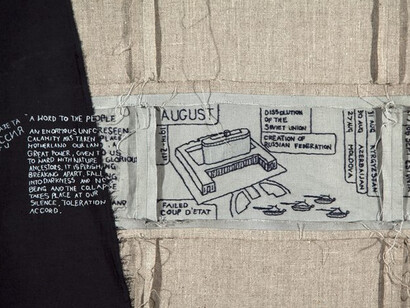 "A WORD TO THE PEOPLE"
AN ENORMOUS, UNFORESEEN
CALAMITY HAS TAKEN PLACE
MOTHERLAND OUR LAND,
GREAT POWER, GIVEN TO US
TO WARD WITH NATURE, GLORIOUS
ANCESTORS, IT IS PERISHING
BREAKING APART, FALL
INTO DARKNESS AND NON
BEING AND THE COLLAPSE
TAKES PLACE AT OUR
SILENCE, TOLERATION
ACCORD.
AUGUST
FAILED
COUP D'ETAT
DISSOLUTION
OF THE
SOVIET UNION
CREATION OF
RUSSIAN FEDERATION
27 AUG
MOLDOVA
30 AUG
AZERBAIJAN
31 AUG
KYRGYZSTAN